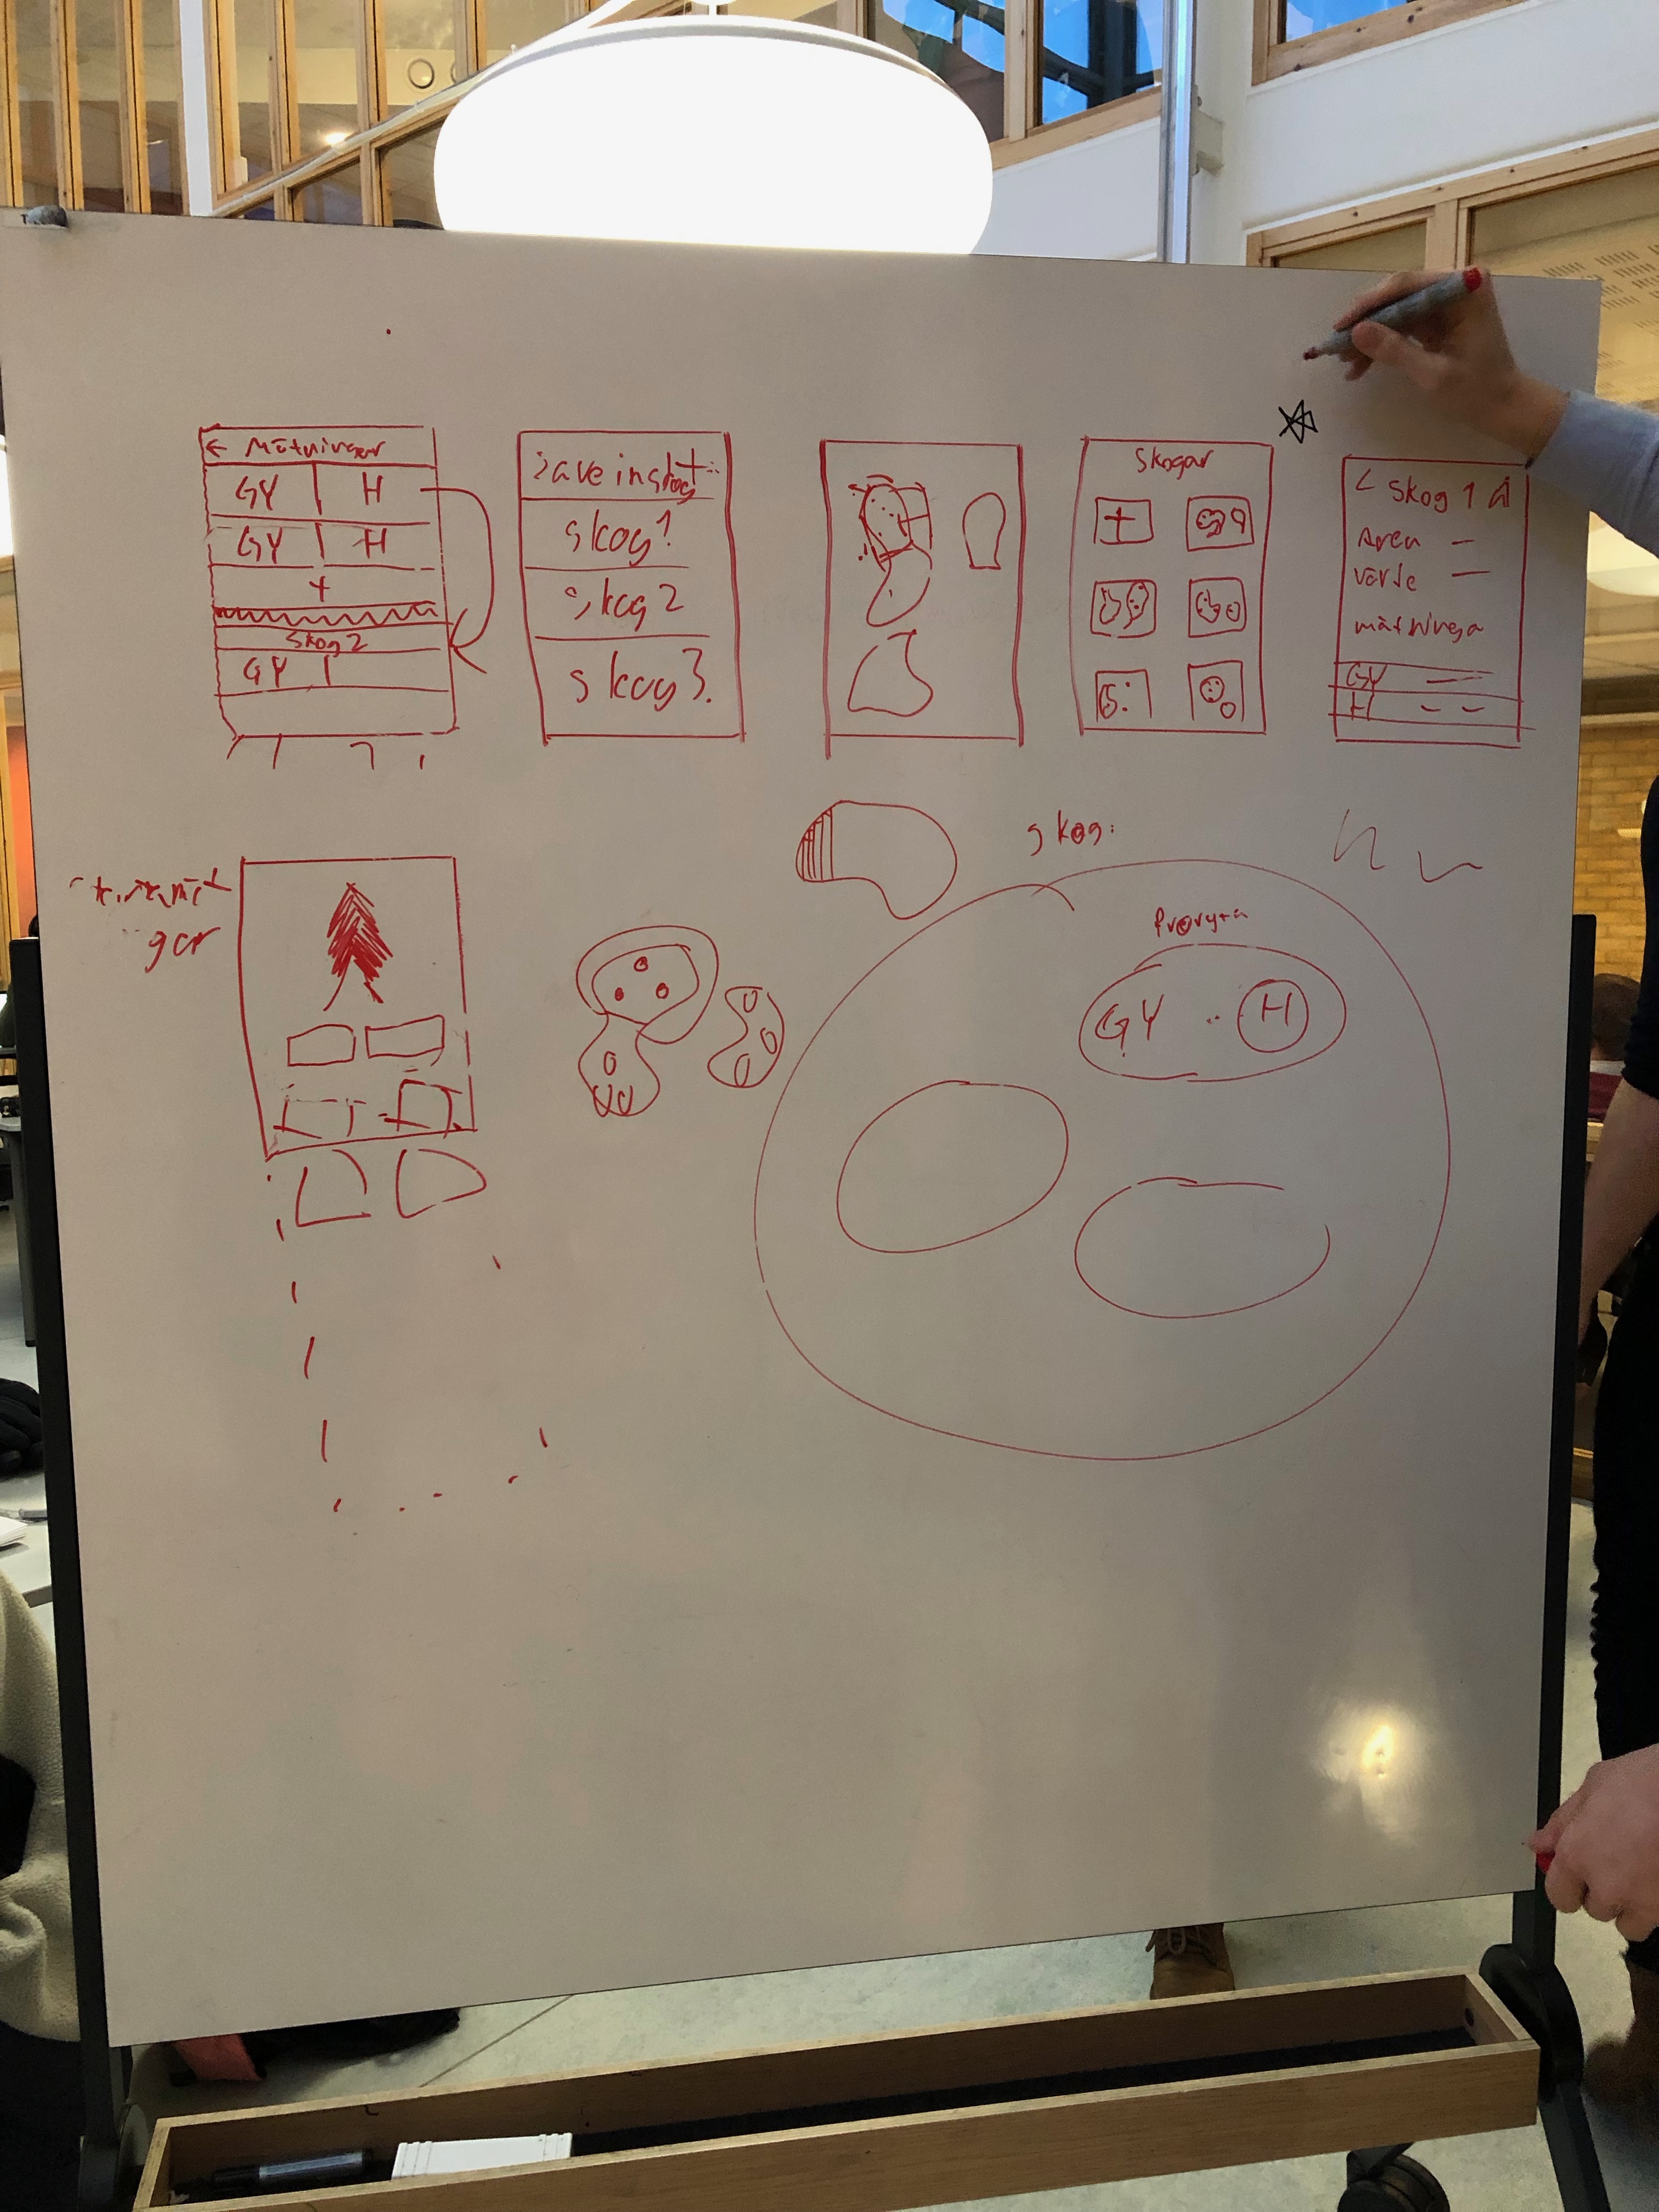 ← Mätningar
GY H
GY H
+
Skog 2
GY
Save in skog
skog 1
skog 2
skog 3.
Skogar
+
< Skog 1
Area —
värde —
mätninga
GY
H
skog:
Provyta
GY .. H